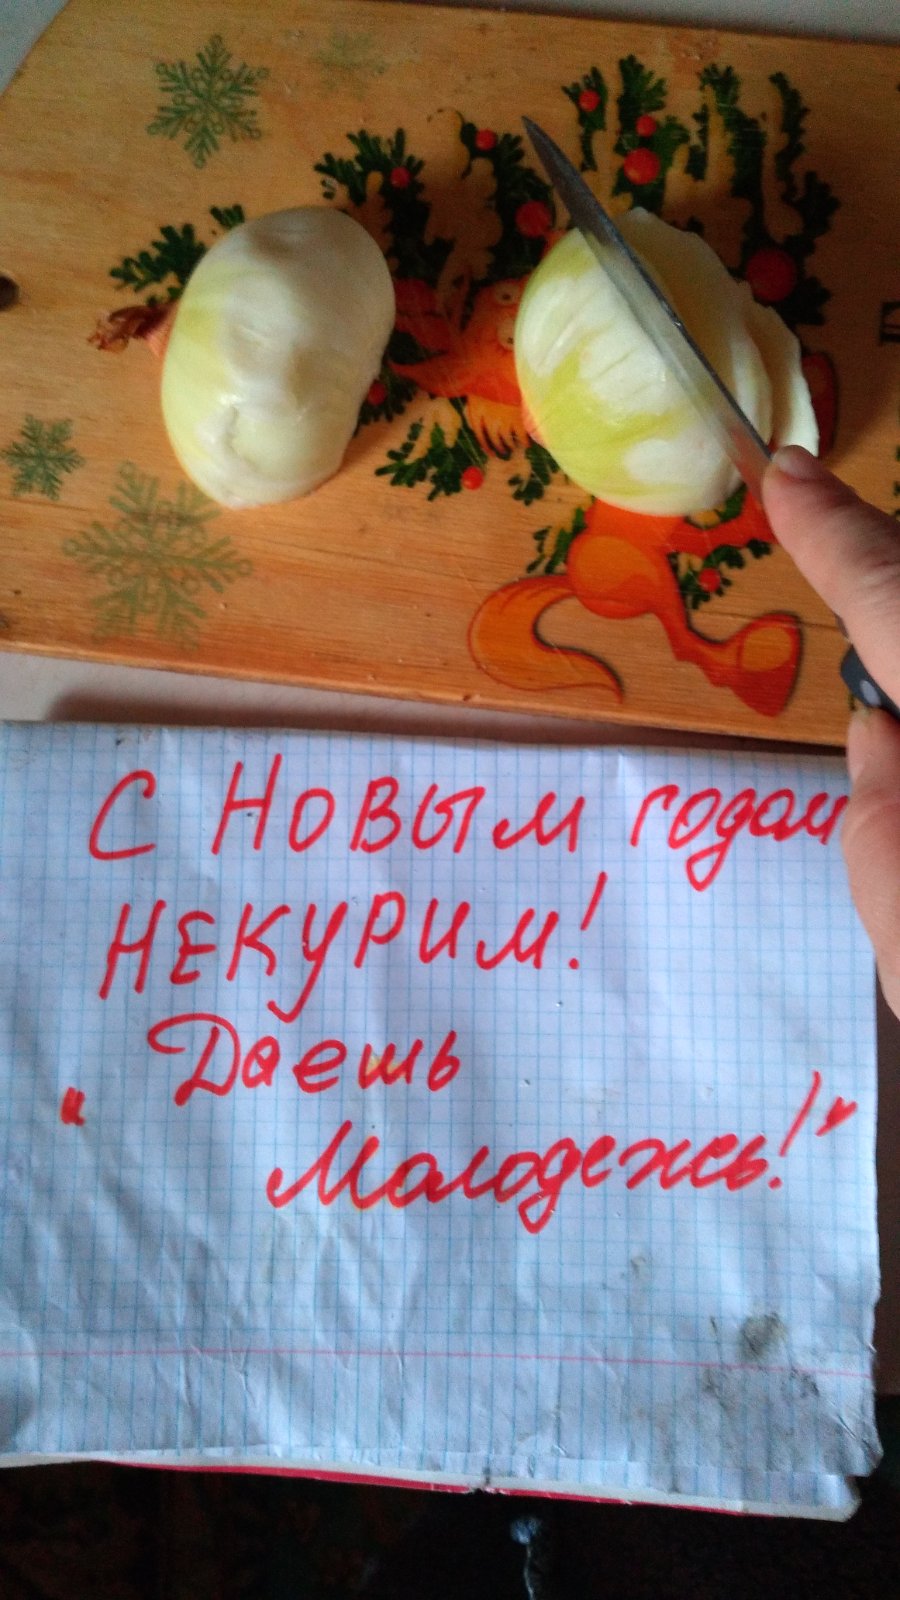 С Новым годом
НЕКУРИМ!
Даешь
"Молодежь!"